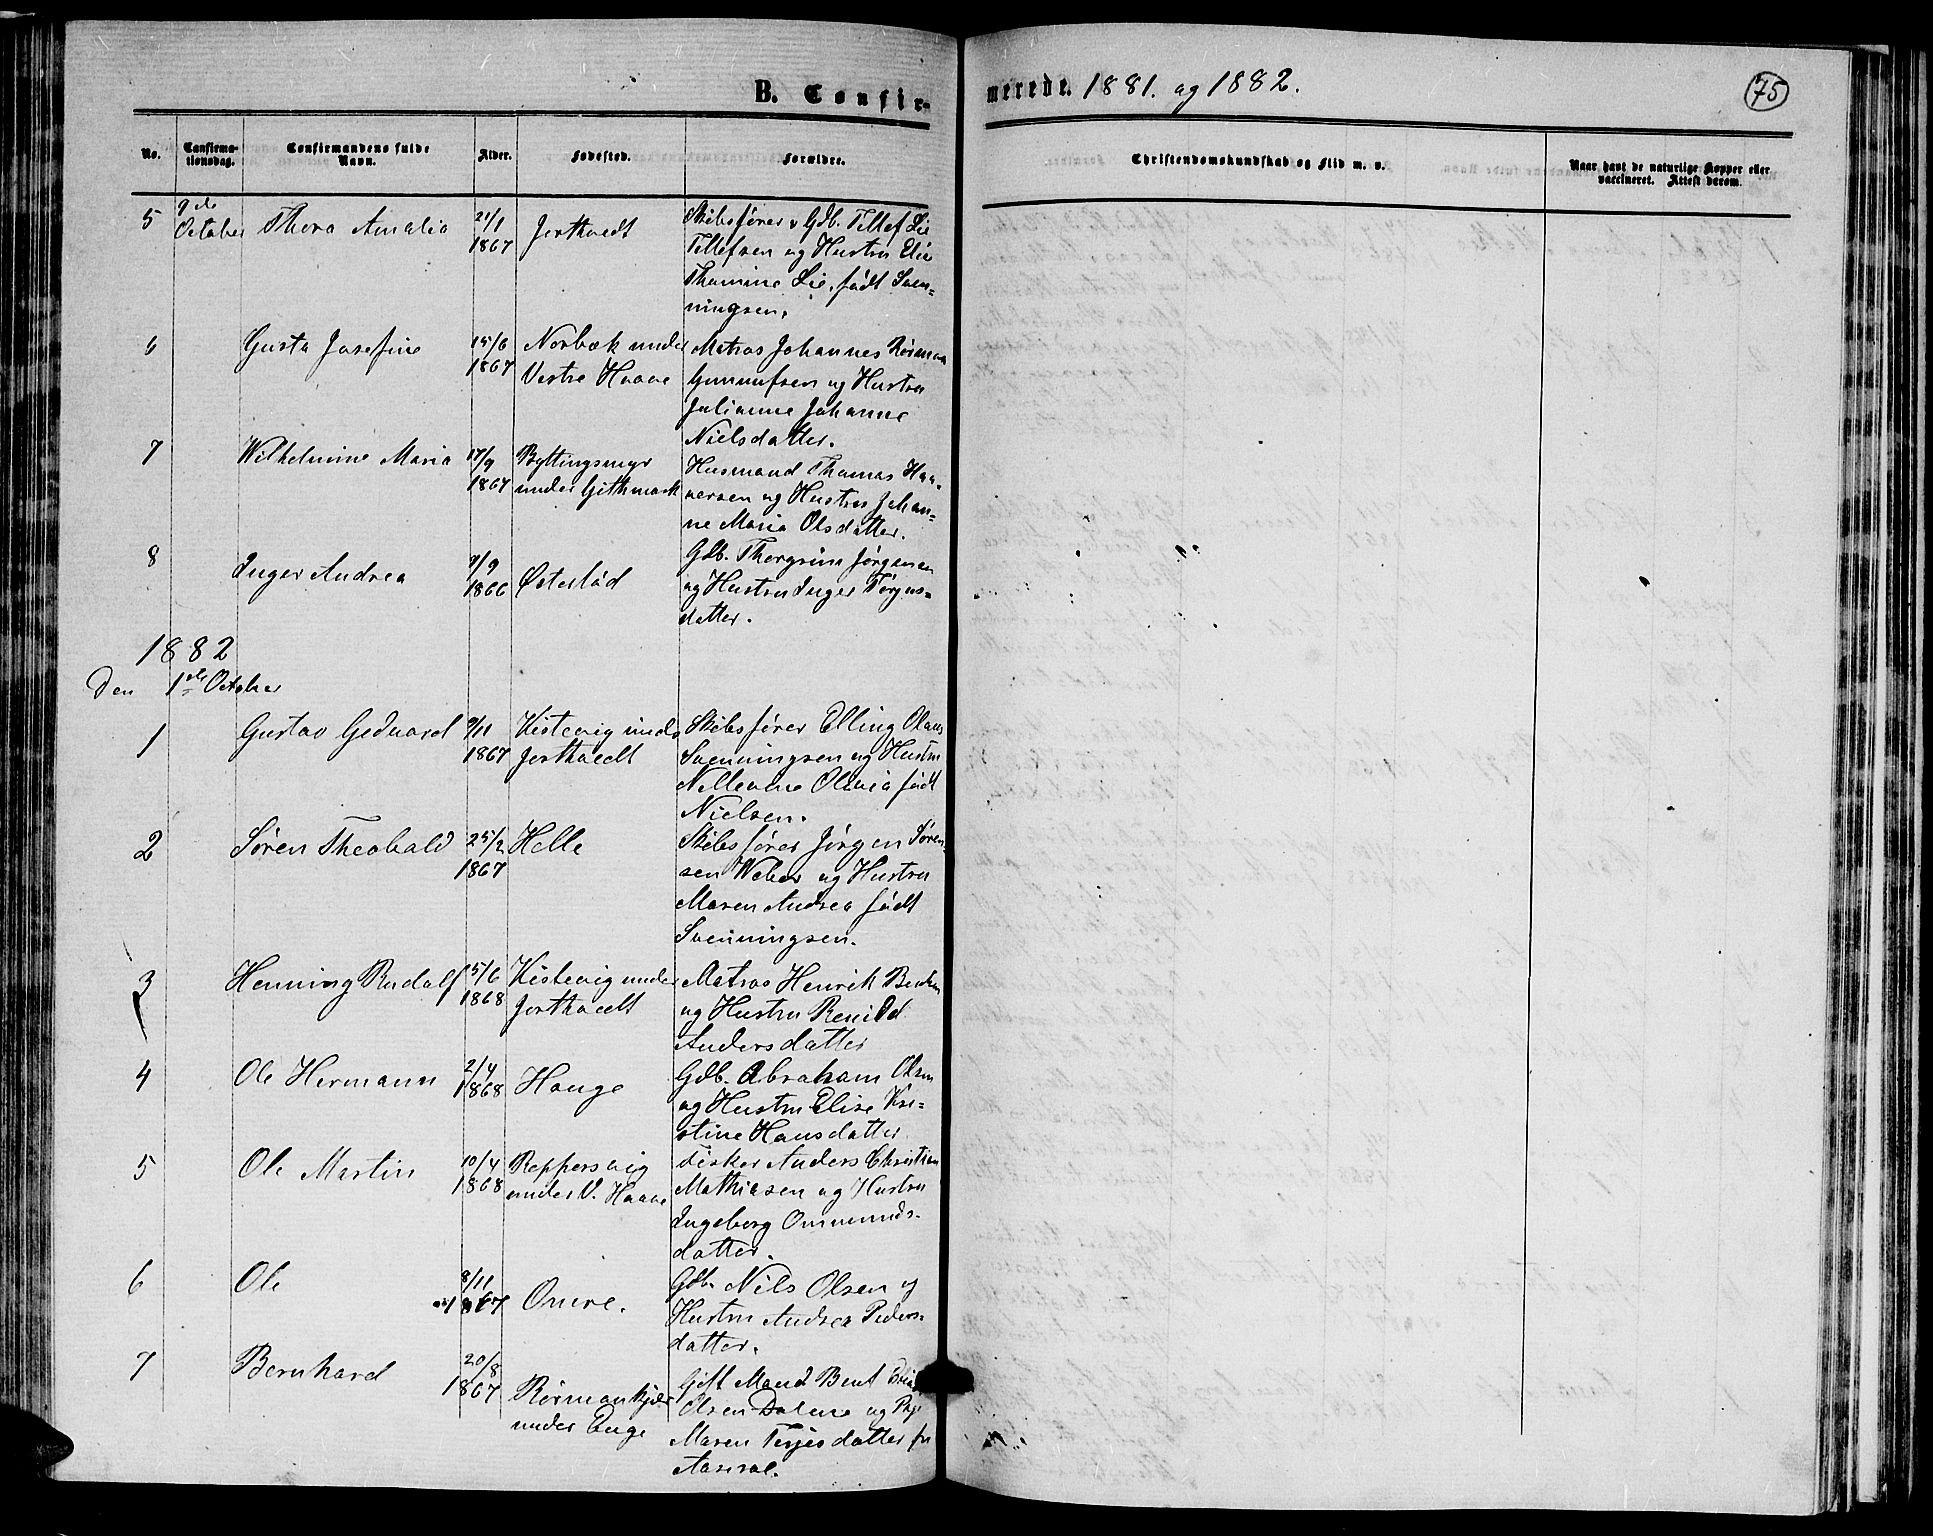 B. Confir-
merede. 1881. og 1882.
75
No.
Confirma-
tionsdag.
Confirmandens fulde
Navn.
Alder.
Fødested.
Forældre.
Christendomskundskab og Flid m. v.
Naar havt de naturlige Kopper eller
vaccineret. Attest derom.
5
9de
October
Thora Amalia
21/1
1867
Jortveedt
Skibsfører & Gdb. Tellef Lie
Tellefsen og Hustru Elie
Thomine Lie, født Sven-
ningsen.
6
Gusta Josefine
15/6
1867
Norbæk under
Vestre Haave
Matros Johannes Rosman
Gunnufsen og Hustru
Julianne Johanne
Nielsdatter.
7
Wilhelmine Maria
17/9
1867
Byttingsmyr
under Githmark
Husmand Thomas Haa-
versen og Hustru Johan-
ne Maria Olsdatter.
8
Inger Andrea
9/9
1866
Østeslød
Gdb. Thorgrim Jørgensen
og Hustru Inger Torjus-
datter.
1882
Den 1ste October
1
Gustav Gedvard
9/11
1867
Kistevig under
Jortveedt
Skibsfører Elling Olaus
Svenningsen og Hustru
Nilleane Olivia født
Nielsen.
2
Søren Theobald
25/2
1867
Helle
Skibsfører Jørgen Søren-
sen Weber og Hustru
Maren Andrea født
Svenningsen.
3
Henning Rudolf
5/6
1868
Kistevig under
Jortveedt
Matros Henrik Bentsen
og Hustru Renild
Andersdatter
4
Ole Hermann
2/4
1868
Hauge
Gdb. Abraham Olsen
og Hustru Elise Kri-
stine Hansdatter.
5
Ole Martin
10/4
1868
Reppersvig
under V. Haave
Fisker Anders Christian
Mathiasen og Hustru
Ingeborg Ommunds-
datter.
6
Ole
8/11
1867
Omre.
Gdb. Nils Olsen og
Hustru Andrea Peders-
datter.
7
Bernhard
20/8
1867
Rosmankjær
under Enge
Gift Mand Bent Elias
Olsen Dalene og Pige
Maren Terjesdatter fra
Aaseral.